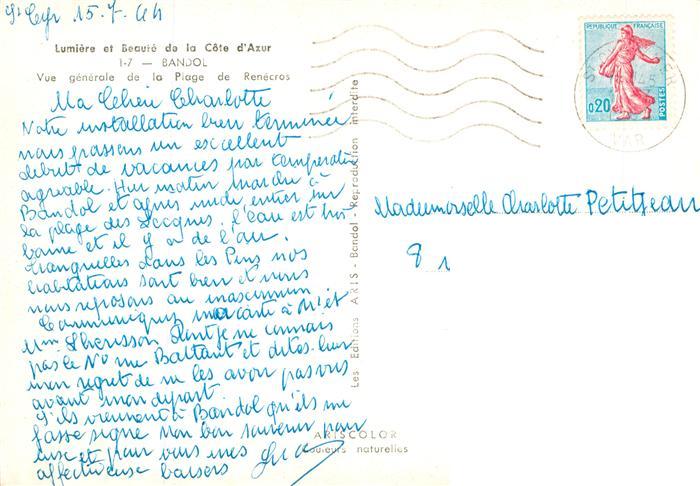 St Cyr 15.7.64
Lumière et Beauté de la Côte d'Azur
1-7 — BANDOL
Vue générale de la Plage de Renécros
Ma Chère Charlotte
Notre installation bien terminée
nous passons un excellent
début de vacances par température
agréable. Hier matin marché à
Bandol et après midi entier sur
la plage des Lecques. l'eau est très
bonne et il y a de l'air.
tranquilles dans les Pins nos
habitations sont bien et nous
nous reposons au maximum
Communiquez ma carte à Mr et
Mme dont je ne connais
pas le No rue Battant et dites leur
mon regret de ne les avoir pas vus
avant mon départ
S'ils viennent à Bandol qu'ils me
fasse signe Mon bon souvenir pour
eux et pour vous mes
affectueux baisers
Les Editions ARIS - Bandol - Reproduction interdite
ARISCOLOR
couleurs naturelles
REPUBLIQUE FRANÇAISE
0,20
POSTES
VAR
Mademoiselle Charlotte Petitjean
8 1